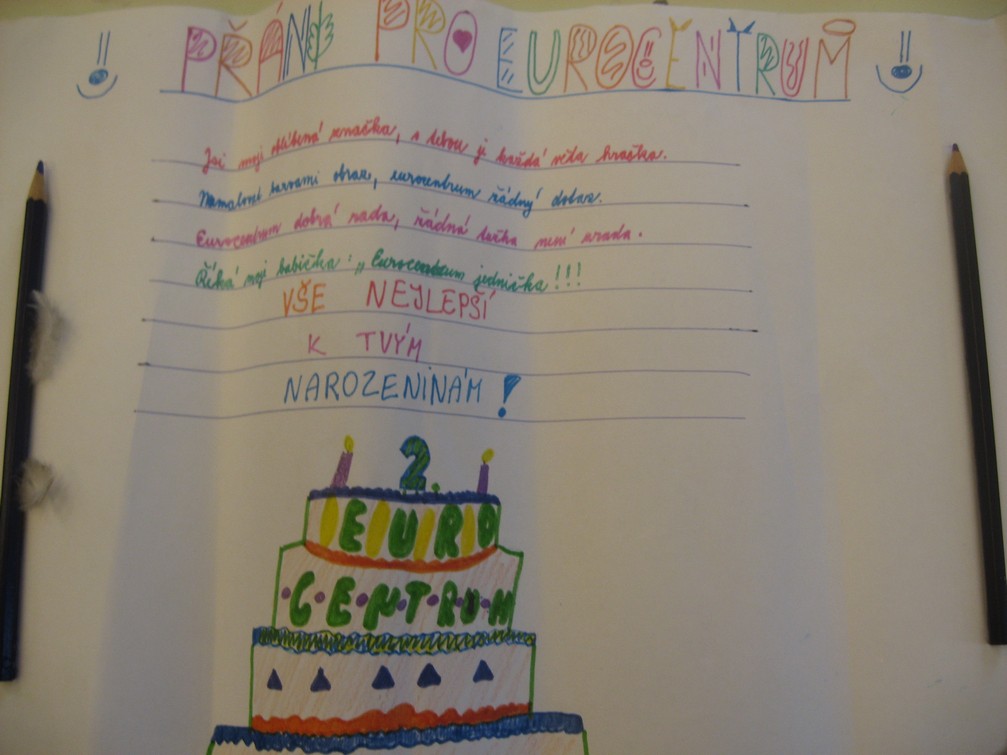 PŘÁNÍ PRO EUROCENTRUM
Jsi moji oblíbená značka, s tebou je každá věta hračka.
barvami obraz, eurocentrum řádný
Eurocentrum dobrá rada, řádná tečka není zrada.
Říká moji babička: „Eurocentrum jednička!!!
VŠE NEJLEPŠÍ
K TVÝM
NAROZENINÁM!
2.
EURO
CENTRUM